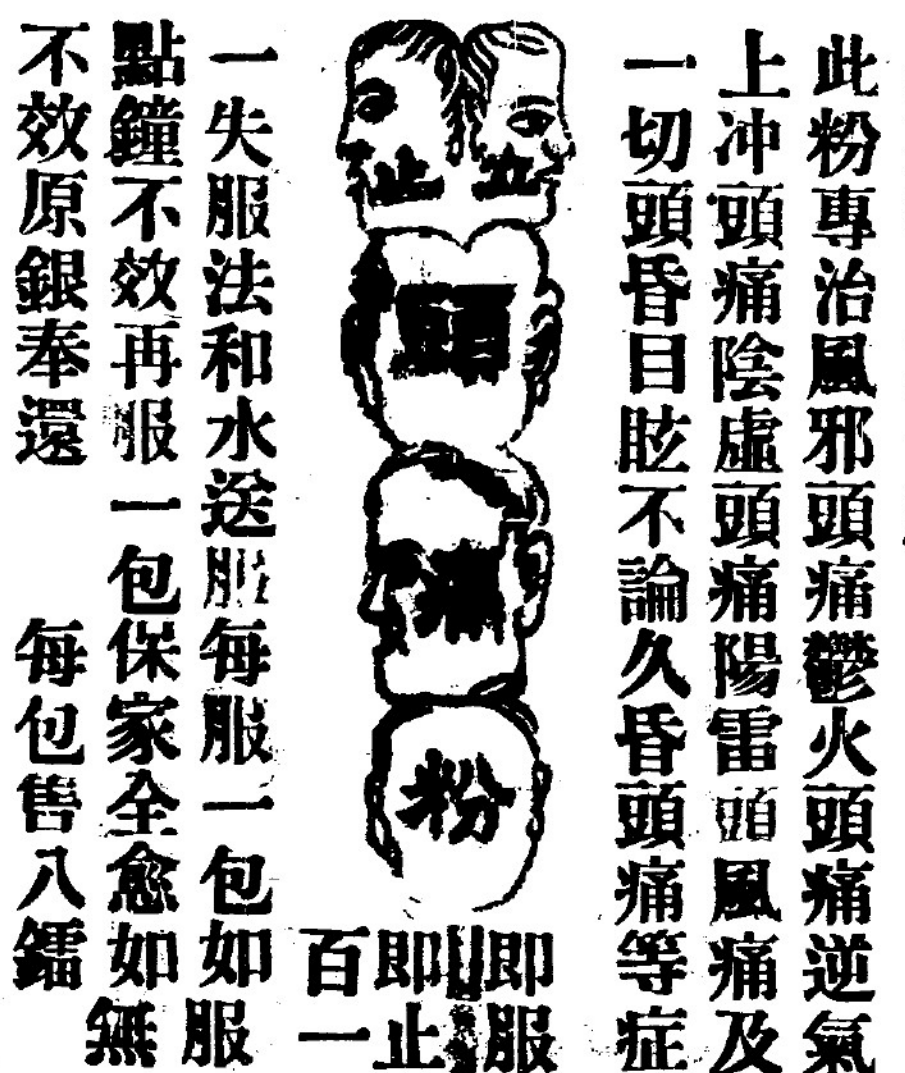 此粉專治風邪頭痛鬱火頭痛逆氣
上冲頭痛陰虛頭痛陽雷頭風痛及
一切頭昏目眩不論久昏頭痛等症
立止
頭
痛
粉
即服
即止
百一
一失服法和水送服每服一包如服
點鐘不效再服一包保家全愈如無
不效原銀奉還 每包售八鐳